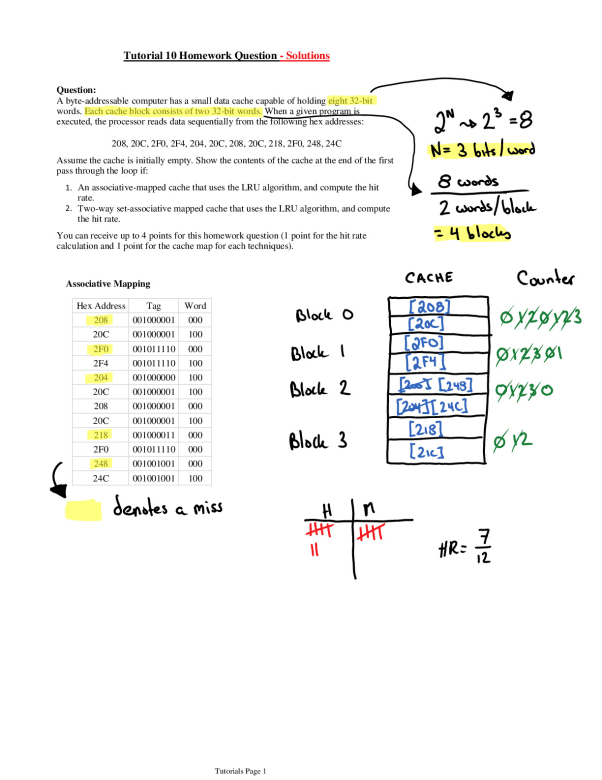 Tutorial 10 Homework Question - Solutions
Question:
A byte-addressable computer has a small data cache capable of holding eight 32-bit
words. Each cache block consists of two 32-bit words. When a given program is
executed, the processor reads data sequentially from the following hex addresses:
208, 20C, 2F0, 2F4, 204, 20C, 208, 20C, 218, 2F0, 248, 24C
Assume the cache is initially empty. Show the contents of the cache at the end of the first
pass through the loop if:
1. An associative-mapped cache that uses the LRU algorithm, and compute the hit
rate.
2. Two-way set-associative mapped cache that uses the LRU algorithm, and compute
the hit rate.
You can receive up to 4 points for this homework question (1 point for the hit rate
calculation and 1 point for the cache map for each techniques).
2^N → 2^3 = 8
N= 3 bits/word
8 words
2 words/block
= 4 blocks
Associative Mapping
Hex Address Tag Word
208 001000001 000
20C 001000001 100
2F0 001011110 000
2F4 001011110 100
204 001000000 100
20C 001000001 100
208 001000001 000
20C 001000001 100
218 001000011 000
2F0 001011110 000
248 001001001 000
24C 001001001 100
denotes a miss
CACHE Counter
Block 0 [208] 0 1 2 0 1 2 3
[20C]
Block 1 [2F0] 0 1 2 3 0 1
[2F4]
Block 2 [248] 0 1 2 3 0
[204] [24C]
Block 3 [218] 0 1 2
[21C]
H M
HR= 7
12
Tutorials Page 1